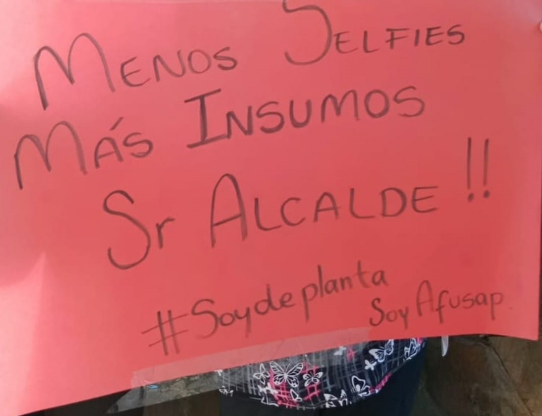 Menos Selfies
Más Insumos
Sr Alcalde !!
#Soydeplanta
Soy Afusap